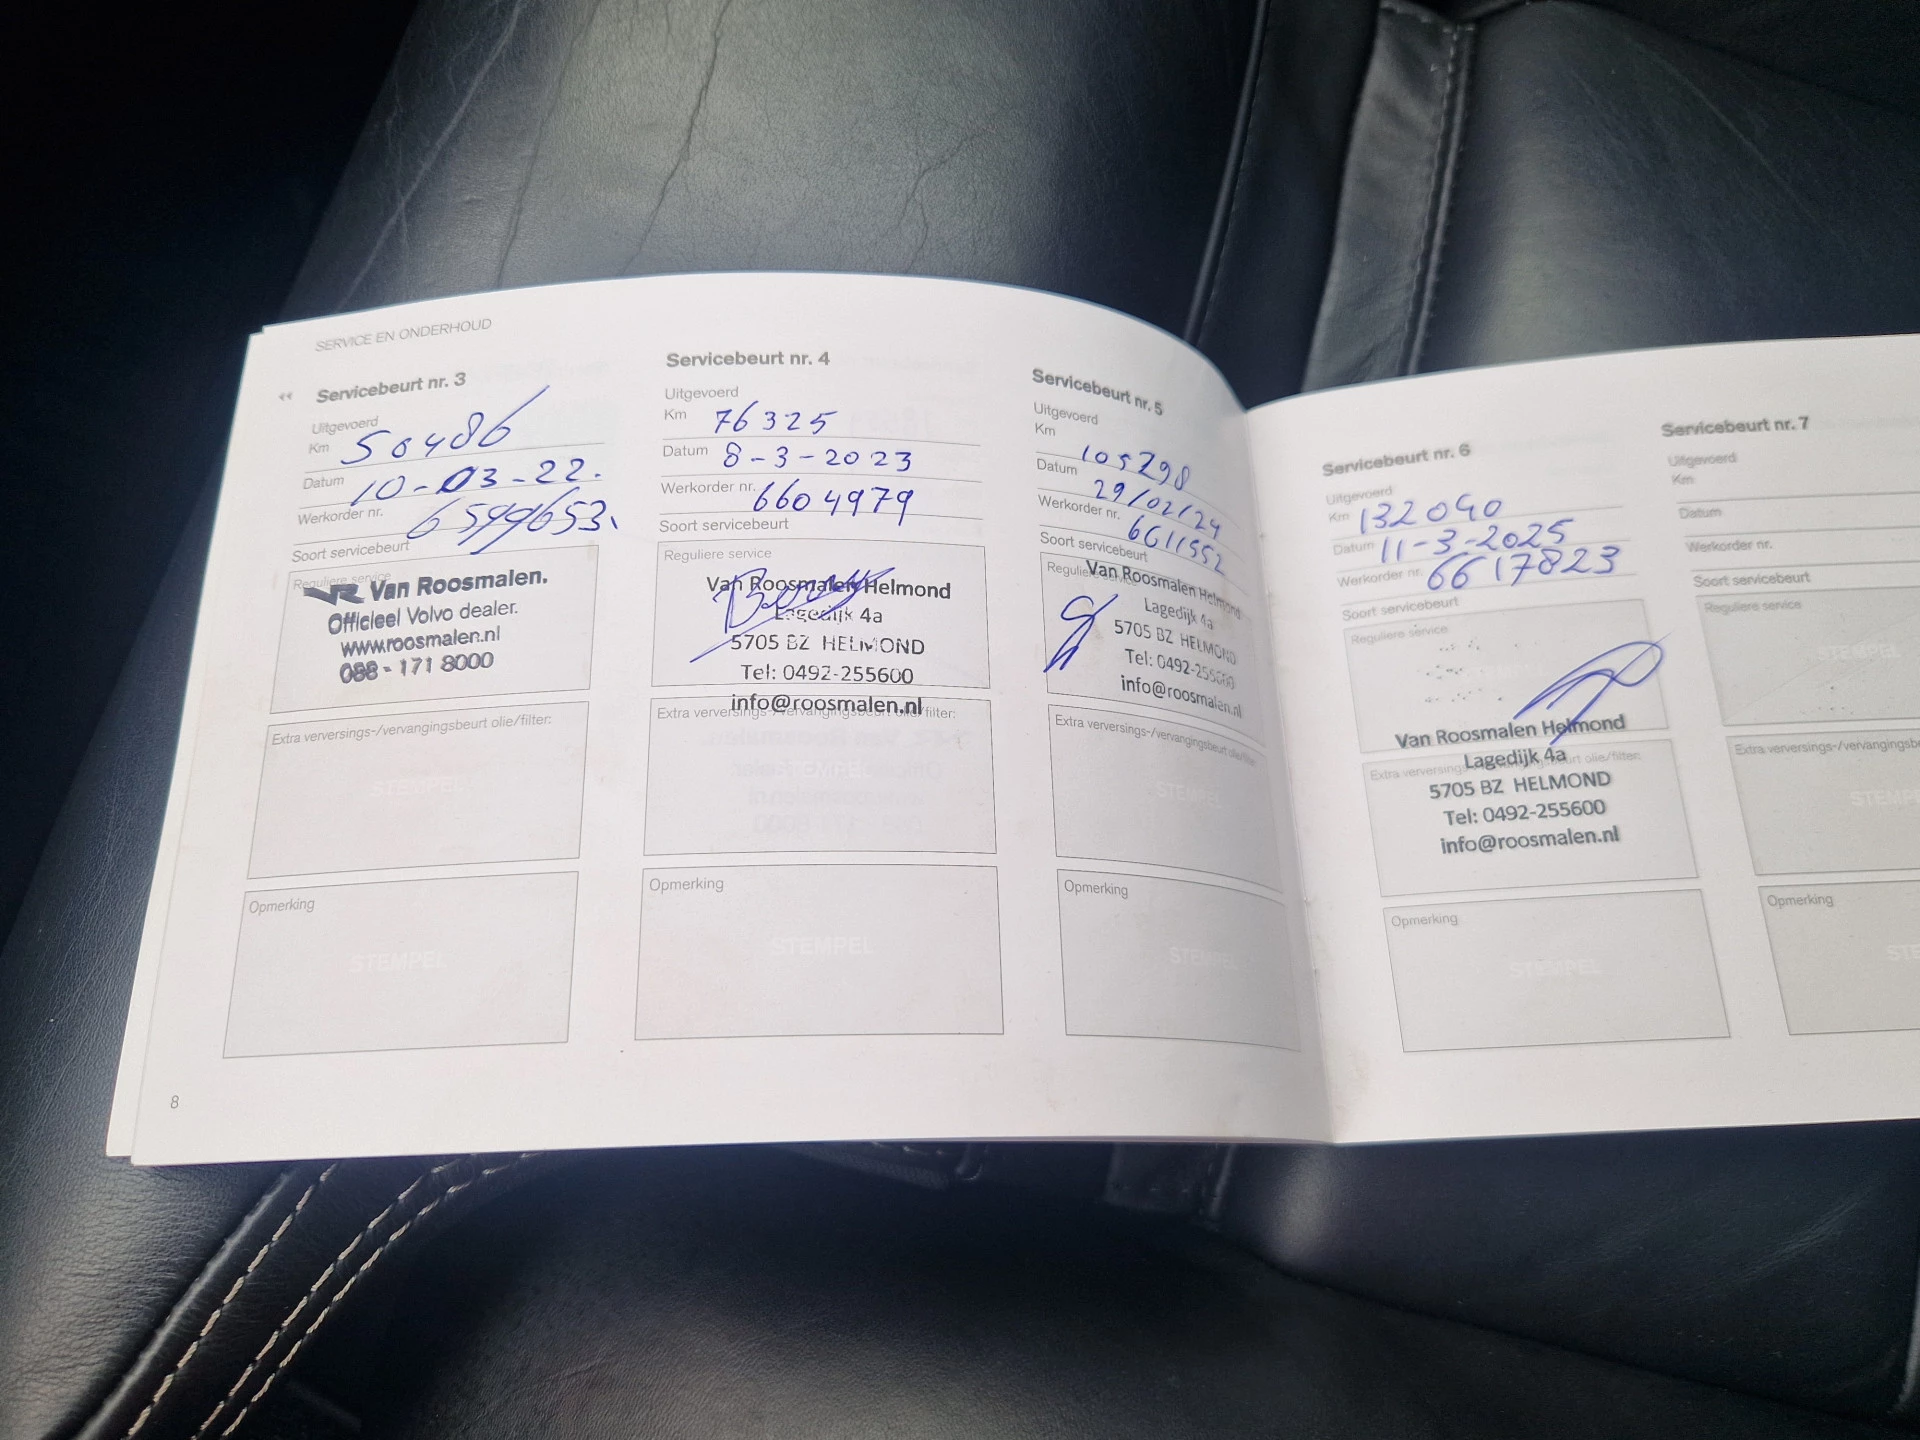 SERVICE EN ONDERHOUD
Servicebeurt nr. 3
Uitgevoerd
Km 50486
Datum 10-03-22.
Werkorder nr. 6599653.
Soort servicebeurt
Reguliere service
Van Roosmalen.
Officieel Volvo dealer.
www.roosmalen.nl
088 - 171 8000
Extra verversings-/vervangingsbeurt olie/filter:
STEMPEL
Opmerking
STEMPEL
8
Servicebeurt nr. 4
Uitgevoerd
Km 76325
Datum 8-3-2023
Werkorder nr. 6604979
Soort servicebeurt
Reguliere service
Van Roosmalen Helmond
Lagedijk 4a
5705 BZ HELMOND
Tel: 0492-255600
info@roosmalen.nl
Extra verversings-/vervangingsbeurt olie/filter:
Opmerking
STEMPEL
Servicebeurt nr. 5
Uitgevoerd
Km 105298
Datum 29/02/24
Werkorder nr. 6611552
Soort servicebeurt
Reguliere
Van Roosmalen Helmond
Lagedijk 4a
5705 BZ HELMOND
Tel: 0492-255600
info@roosmalen.nl
Extra verversings-/vervangingsbeurt olie/filter:
STEMPEL
Opmerking
STEMPEL
Servicebeurt nr. 6
Uitgevoerd
Km 132040
Datum 11-3-2025
Werkorder nr. 6617823
Soort servicebeurt
Reguliere service
Van Roosmalen Helmond
Extra verversings olie/filter:
Lagedijk 4a
5705 BZ HELMOND
Tel: 0492-255600
info@roosmalen.nl
Opmerking
STEMPEL
Servicebeurt nr. 7
Uitgevoerd
Km
Datum
Werkorder nr.
Soort servicebeurt
Reguliere service
STEMPEL
Extra verversings-/vervangingsbe
STEMPE
Opmerking
STE